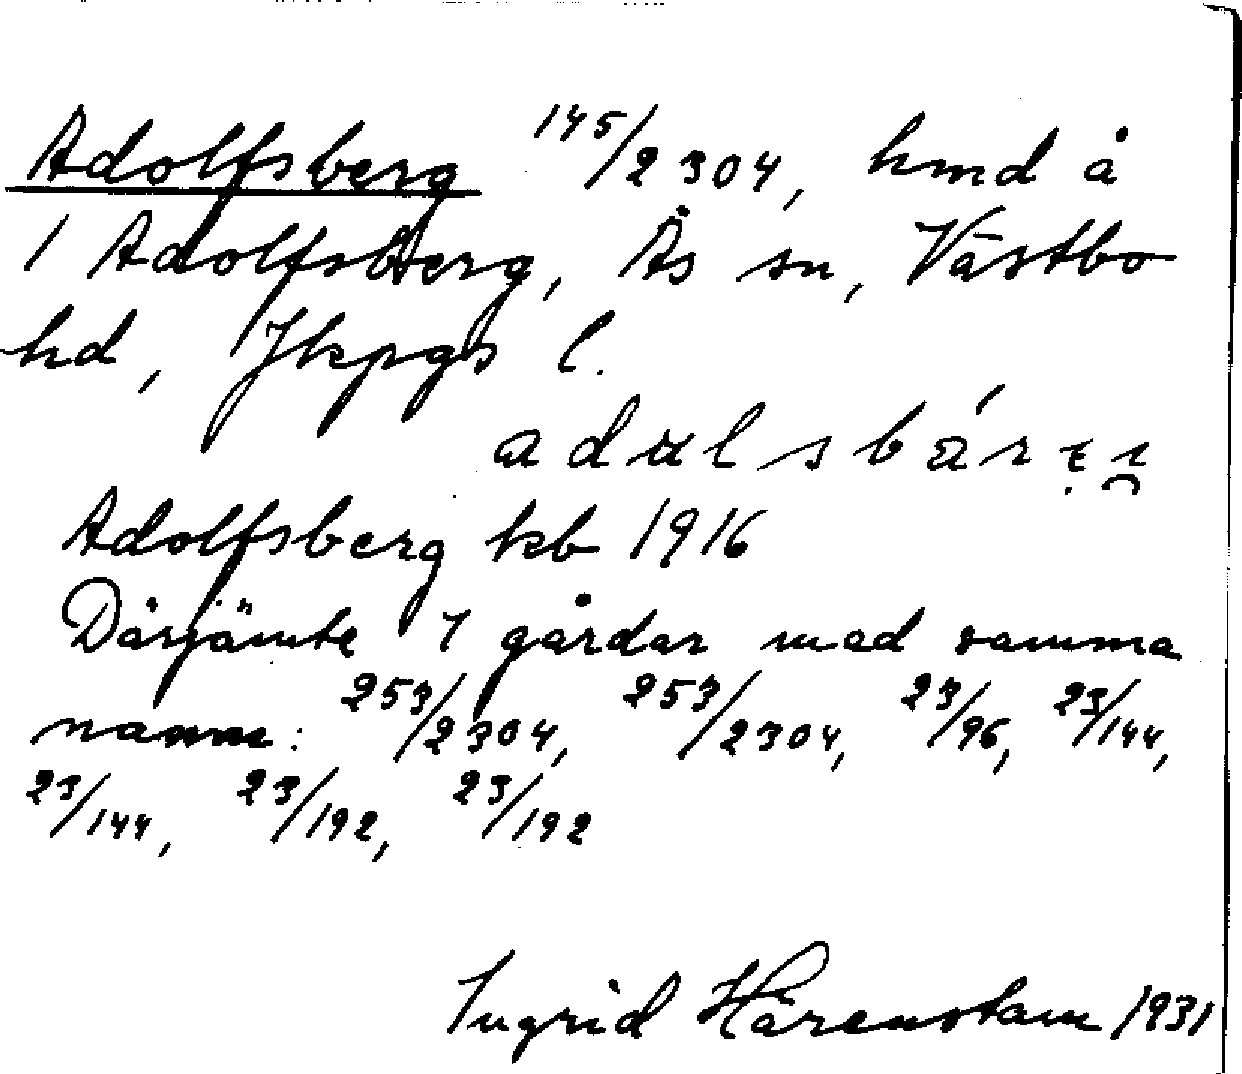 Adolfsberg 145/2304, hmd å
1 Adolfsberg, Ås sn, Västbo
hd, Jkpgs l.
Adolfsberg kb 1916
Därjämte 7 gårdar med samma
namn: 253/2304, 253/2304, 23/96, 23/144,
23/144, 23/192, 23/192
Ingrid Härenstam 1931